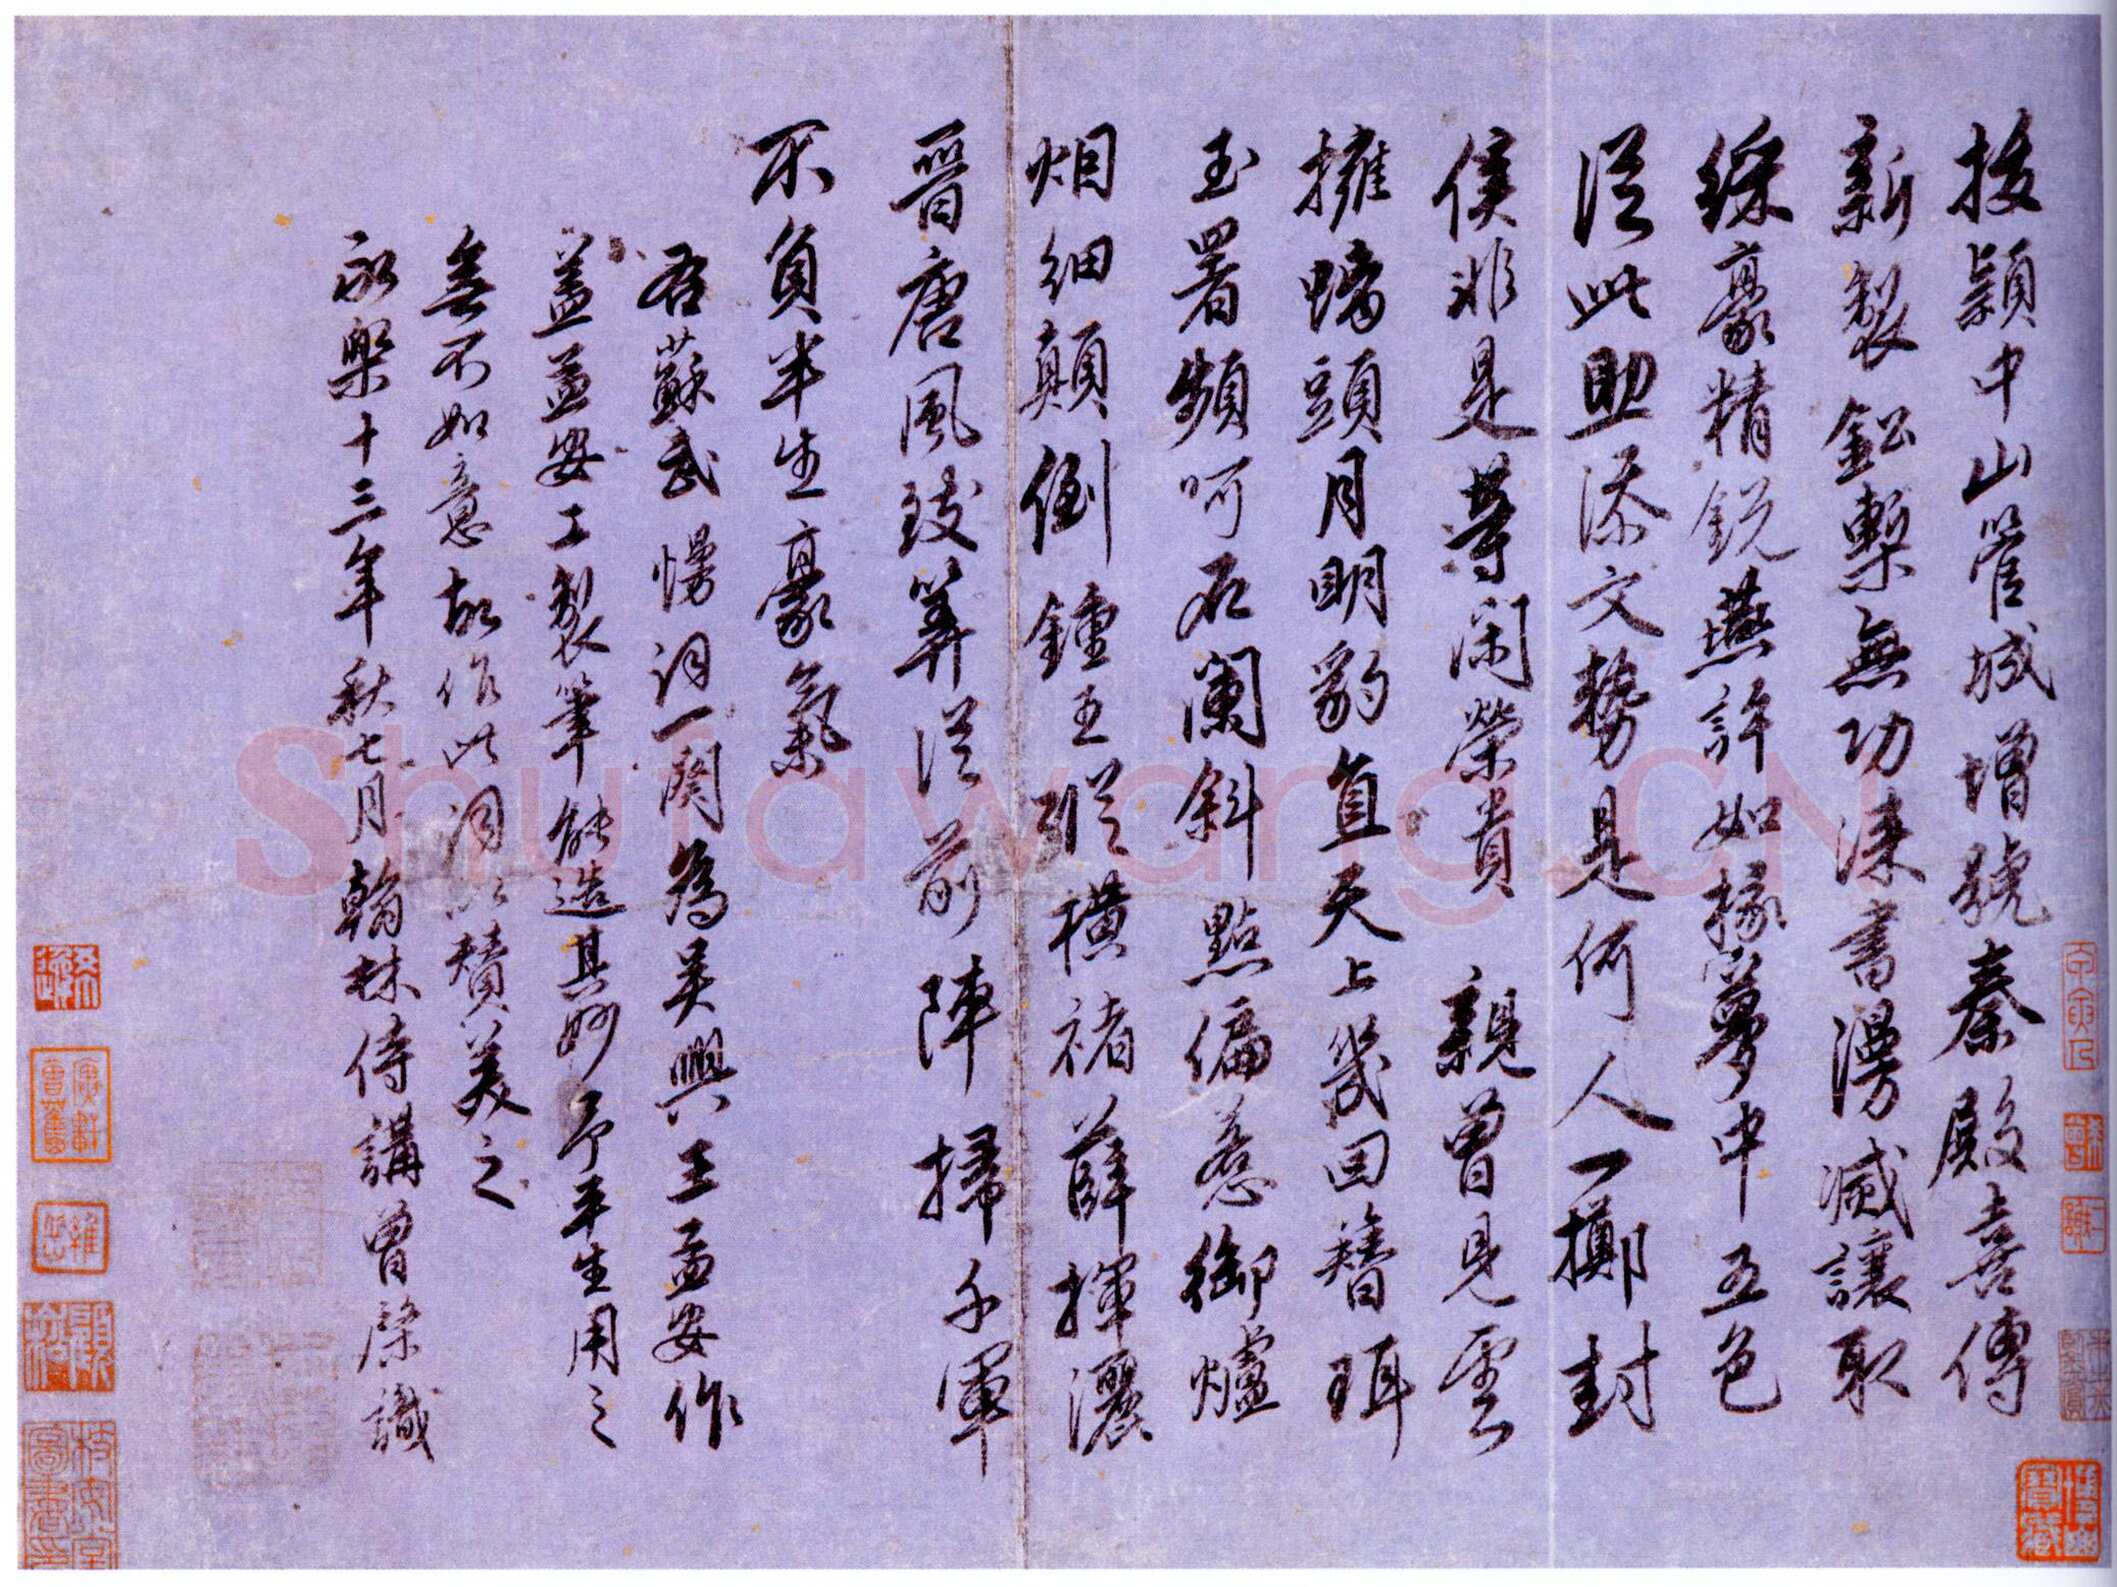 拔穎中山管城增號秦殿喜傳
新製鉛槧無功漆書漫滅讓取
綵豪精銳燕許如椽夢中五色
從此助添文勢是何人一擲封
侯非是等閑榮貴 親曾見雲
擁螭頭月明豹直天上幾回簪珥
玉署頻呵石闌斜點偏惹御爐
烟細顛倒鍾王縱橫褚薛揮灑
晉唐風致算從前陣掃千軍
不負半生豪氣
右蘇武慢詞一闋為吳興王孟安作
蓋孟安工製筆能造其妙予平生用之
無不如意故作此詞以贊美之
永樂十三年秋七月翰林侍講曾棨識
shufawang.CN